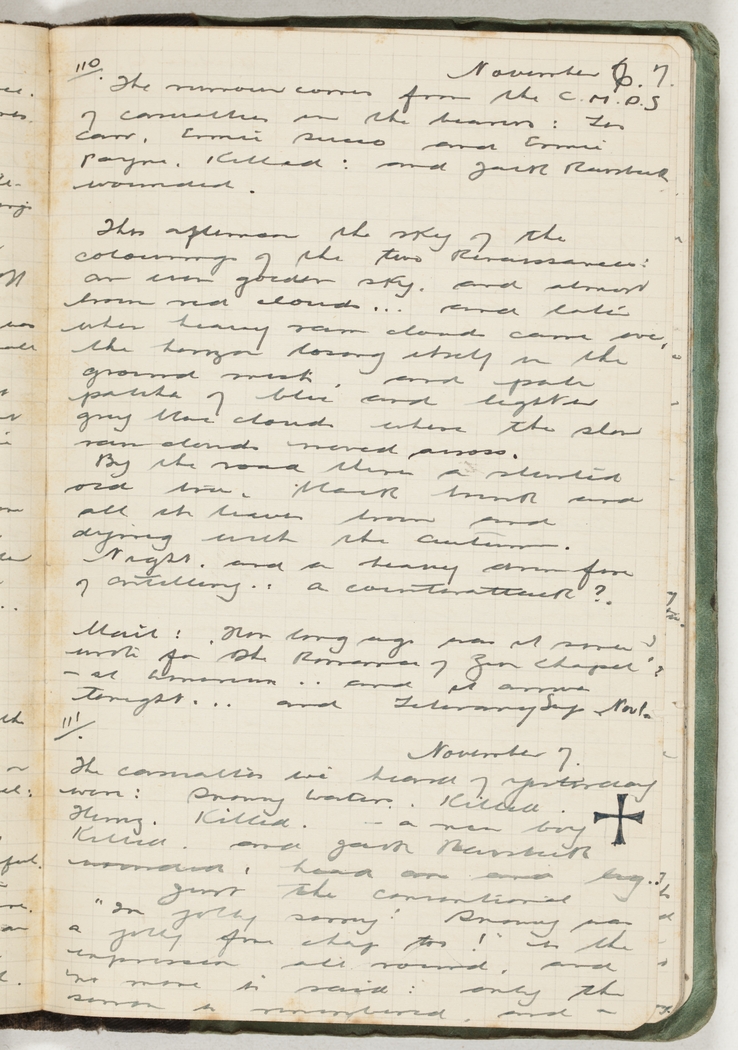 110.
November 6. 7.
The rumour comes from the C.M.D.S
of casualties in the bearers: Les
Carr, Ernie and Ernie
Payne. Killed: and Jack
wounded.
This afternoon the sky of the
colourings of the two Renaissances:
an even golden sky. and almost
brown red clouds... and later
when heavy rain clouds came over,
the horizon losing itself in the
ground mist, and pale
patches of blue and lighter
grey blue clouds where the slow
rain clouds moved across.
By the road there a stunted
old tree, black trunk and
all its leaves brown and
dying with the Autumn.
Night. and a heavy drum fire
of artillery.: a counterattack?.
Mail: How long ago was it since I
wrote for The Romance of Zion Chapel'?
- at .. and it arrives
tonight... and Literary Sup Nov 1.
111.
November 7.
The casualties we heard of yesterday
were: Snowy Waters. Killed.
Killed. - a new boy
Killed. and Jack
wounded, head arm and leg.
Just the conventional
"I'm jolly sorry! Snowy was
a jolly fine chap too!" is the
expression all round, and
no more is said: only the
is remembered, and a